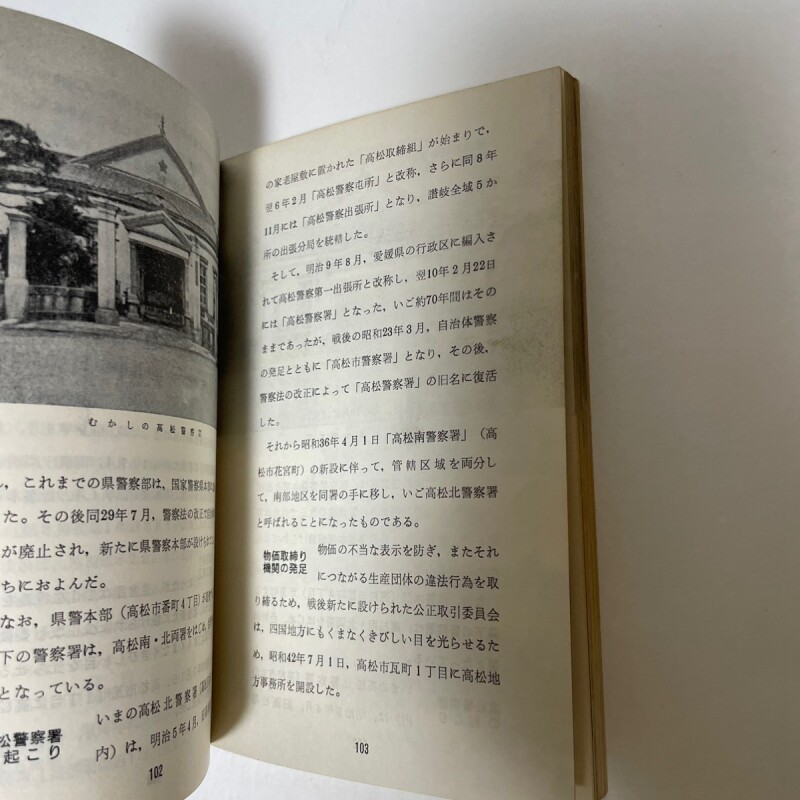 むかしの高松警察
し，これまでの県警察部は，国家警察県本部
た。その後同29年7月，警察法の改正で
が廃止され，新たに県警察本部が設けられ
ちにおよんだ。
なお，県警本部（高松市番町4丁目）
下の警察署は，高松南・北両署をはじめ，
となっている。
松警察署
起こり
いまの高松北警察署
内）は，明治5年4月，
102
の家老屋敷に置かれた「高松取締組」が始まりで，
翌6年2月「高松警察屯所」と改称，さらに同8年
11月には「高松警察出張所」となり，讃岐全域5か
所の出張分局を統轄した。
そして，明治9年8月，愛媛県の行政区に編入さ
れて高松警察第一出張所と改称し，翌10年2月22日
には「高松警察署」となった，いご約70年間はその
ままであったが，戦後の昭和23年3月，自治体警察
の発足とともに「高松市警察署」となり，その後，
警察法の改正によって「高松警察署」の旧名に復活
した。
それから昭和36年4月1日「高松南警察署」（高
松市花宮町）の新設に伴って，管轄区域を両分し
て，南部地区を同署の手に移し，いご高松北警察署
と呼ばれることになったものである。
物価取締り
機関の発足
物価の不当な表示を防ぎ，またそれ
につながる生産団体の違法行為を取
り締るため，戦後新たに設けられた公正取引委員会
は，四国地方にもくまなくきびしい目を光らせるた
め，昭和42年7月1日，高松市瓦町1丁目に高松地
方事務所を開設した。
103